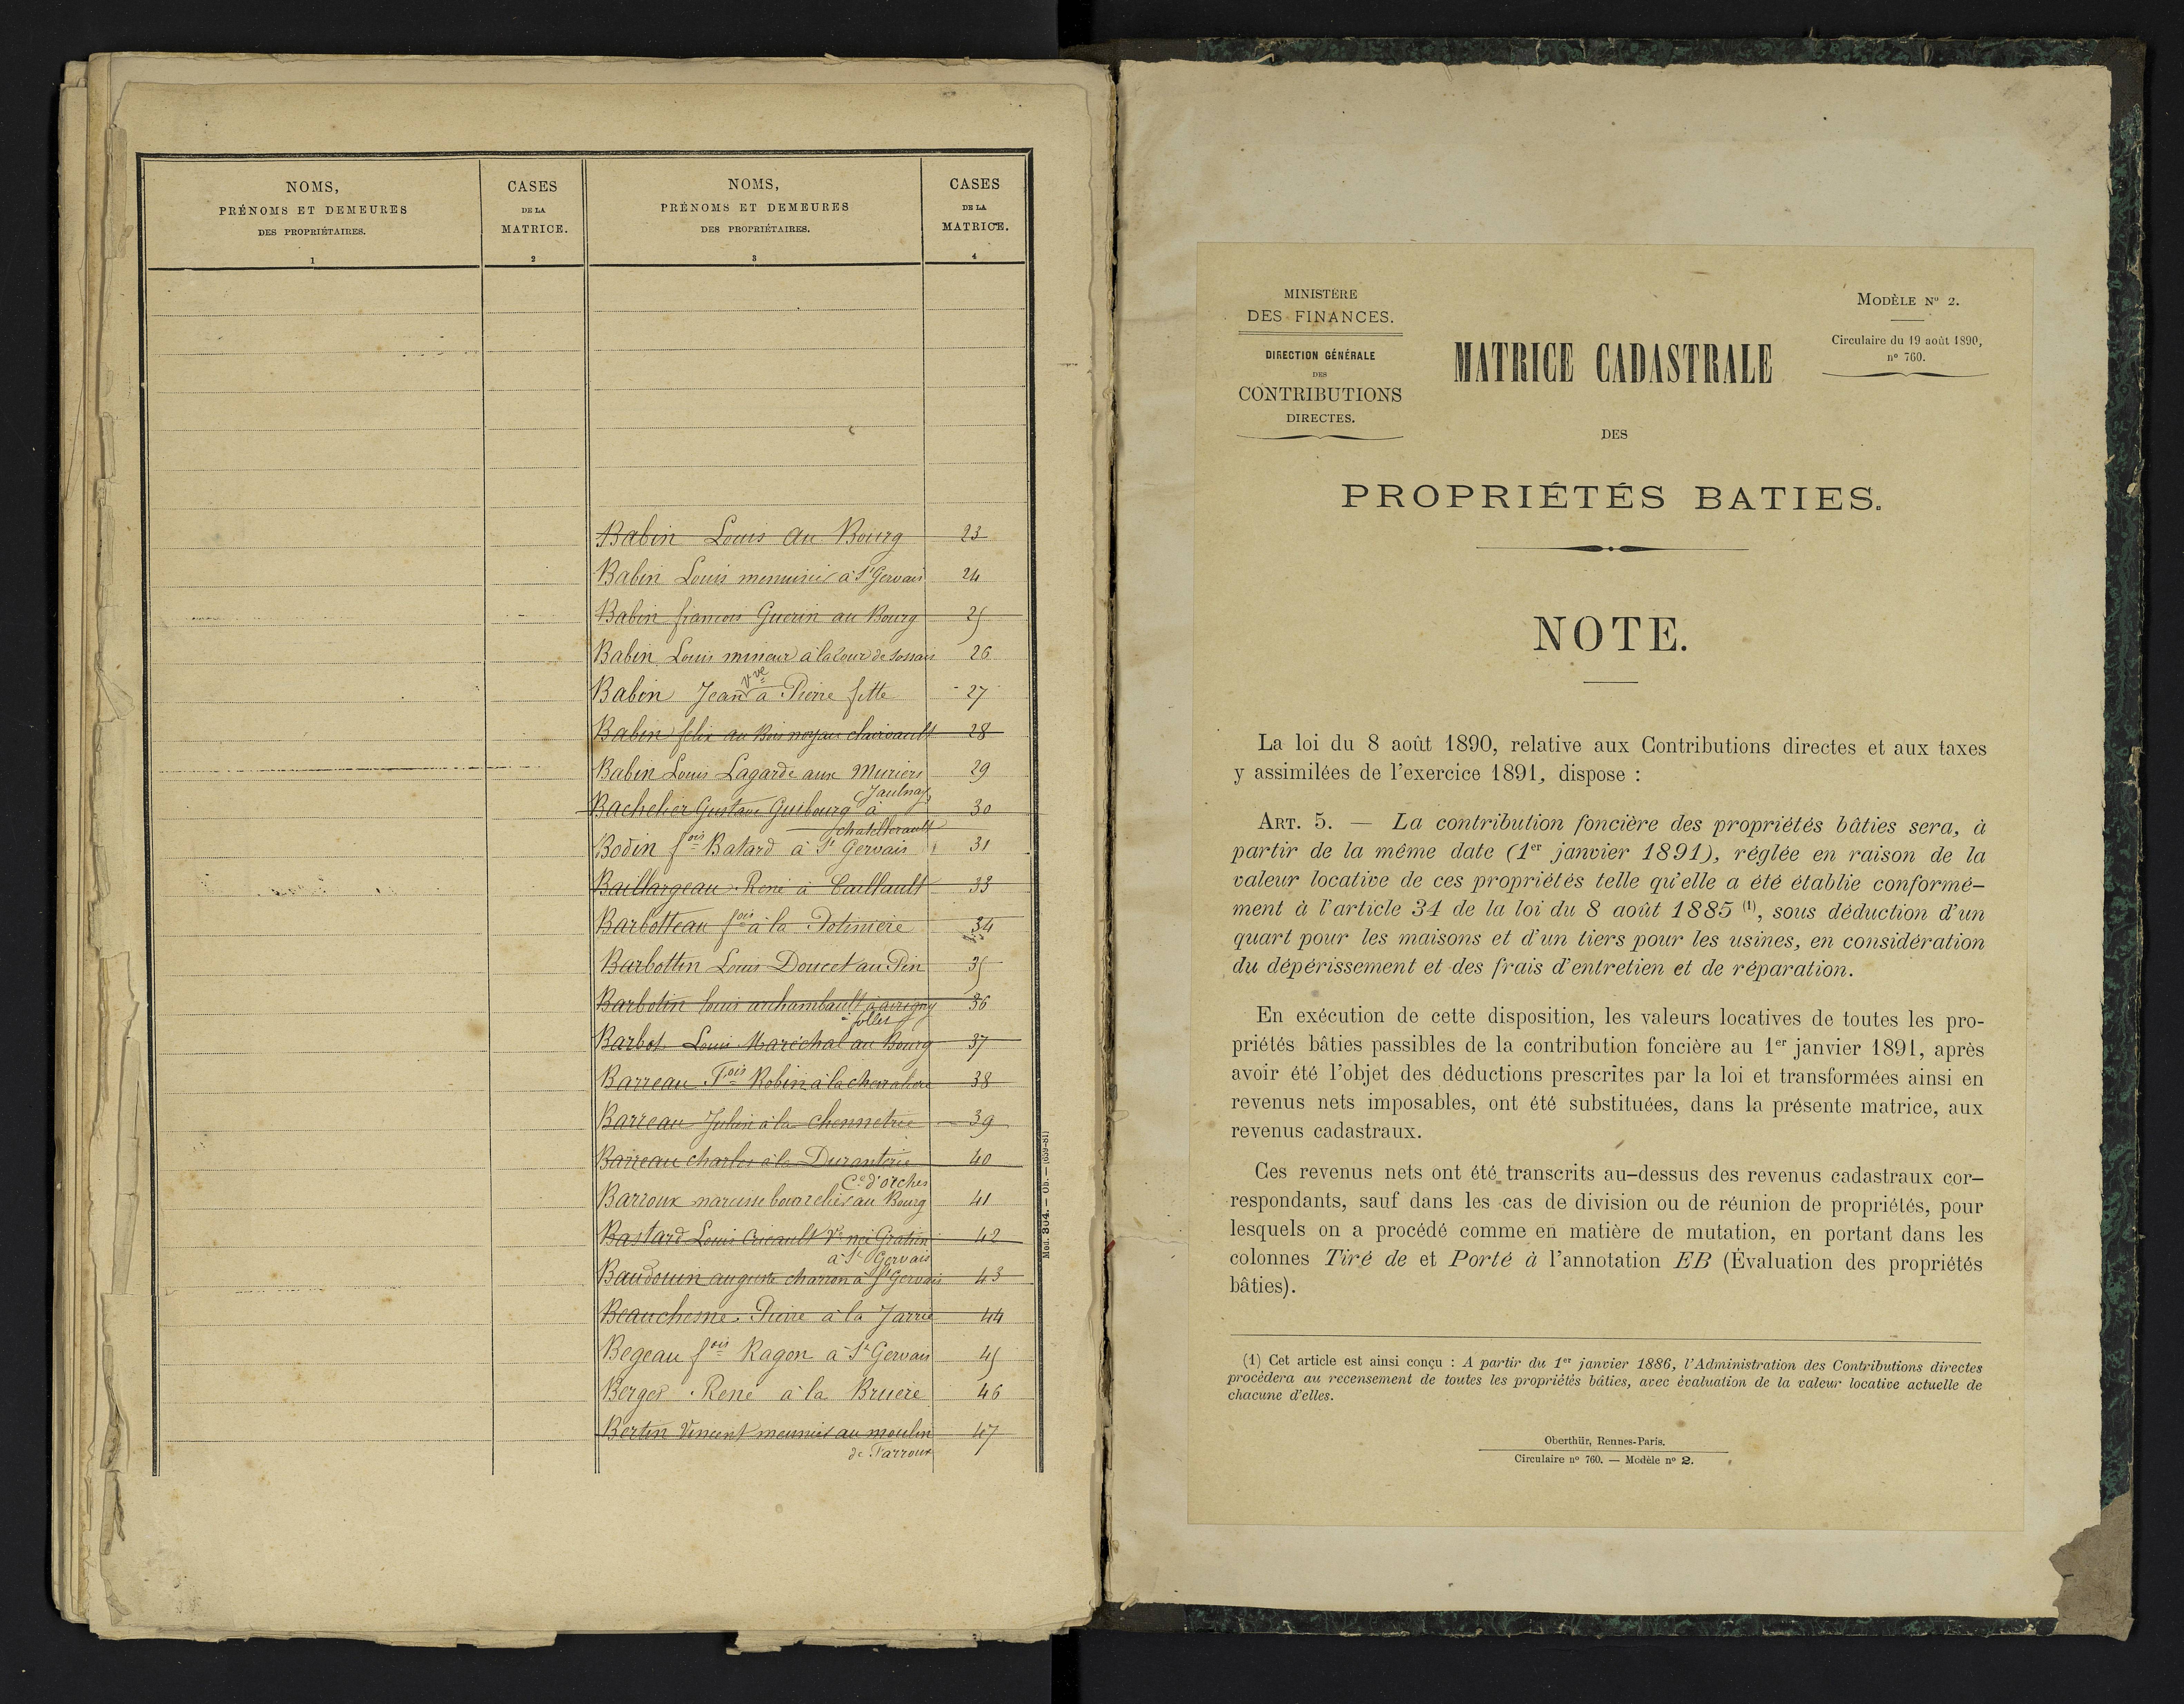 NOMS,
PRÉNOMS ET DEMEURES
DES PROPRIÉTAIRES.
1
CASES
DE LA
MATRICE.
2
NOMS,
PRÉNOMS ET DEMEURES
DES PROPRIÉTAIRES.
3
CASES
DE LA
MATRICE.
4
Babin Louis au Bourg 23
Babin Louis menuisier à St Gervais 24
Babin francois Guerin au Bourg 25
Babin Louis mineur à la Cour de Sossais 26
Babin Jean vve à Pierre fitte 27
Babin felix au Bois noyau clairvault 28
Babin Louis Lagarde aux Muriers 29
Jaulnay
Bachelier Gustave Guibourg à 30
chatellerault
Bodin fois Batard à St Gervais 31
Baillargeau René à Caillault 33
Barbotteau fois à la Potiniere 34
Barbottin Louis Doucet au Pin 35
Barbotin louis archambault à avrigny 36
à
Barbot Louis Maréchal au Bourg 37
Barreau Fois Robin à la 38
Barreau Julien à la 39
Barreau charles à la Duranterie 40
Cne d'orches
Barroux narcisse bourrelier au Bourg 41
Bastard Louis Vve née 42
à St Gervais
Baudouin auguste charron à St Gervais 43
Beauchesne Pierre à la Jarrie 44
Begeau fois Ragon à St Gervais 45
Berger René à la Bruere 46
Bertin Vincent meunier au moulin 47
de Parroux
Mod. 304. — Ob. —
MINISTÈRE
DES FINANCES.
DIRECTION GÉNÉRALE
DES
CONTRIBUTIONS
DIRECTES.
MODÈLE No 2.
Circulaire du 19 août 1890,
no 760.
MATRICE CADASTRALE
DES
PROPRIÉTÉS BATIES.
NOTE.
La loi du 8 août 1890, relative aux Contributions directes et aux taxes
y assimilées de l'exercice 1891, dispose :
ART. 5. — La contribution foncière des propriétés bâties sera, à
partir de la même date (1er janvier 1891), réglée en raison de la
valeur locative de ces propriétés telle qu'elle a été établie conformé-
ment à l'article 34 de la loi du 8 août 1885 (1), sous déduction d'un
quart pour les maisons et d'un tiers pour les usines, en considération
du dépérissement et des frais d'entretien et de réparation.
En exécution de cette disposition, les valeurs locatives de toutes les pro-
priétés bâties passibles de la contribution foncière au 1er janvier 1891, après
avoir été l'objet des déductions prescrites par la loi et transformées ainsi en
revenus nets imposables, ont été substituées, dans la présente matrice, aux
revenus cadastraux.
Ces revenus nets ont été transcrits au-dessus des revenus cadastraux cor-
respondants, sauf dans les cas de division ou de réunion de propriétés, pour
lesquels on a procédé comme en matière de mutation, en portant dans les
colonnes Tiré de et Porté à l'annotation EB (Évaluation des propriétés
bâties).
(1) Cet article est ainsi conçu : A partir du 1er janvier 1886, l'Administration des Contributions directes
procédera au recensement de toutes les propriétés bâties, avec évaluation de la valeur locative actuelle de
chacune d'elles.
Oberthür, Rennes-Paris.
Circulaire no 760. — Modèle no 2.